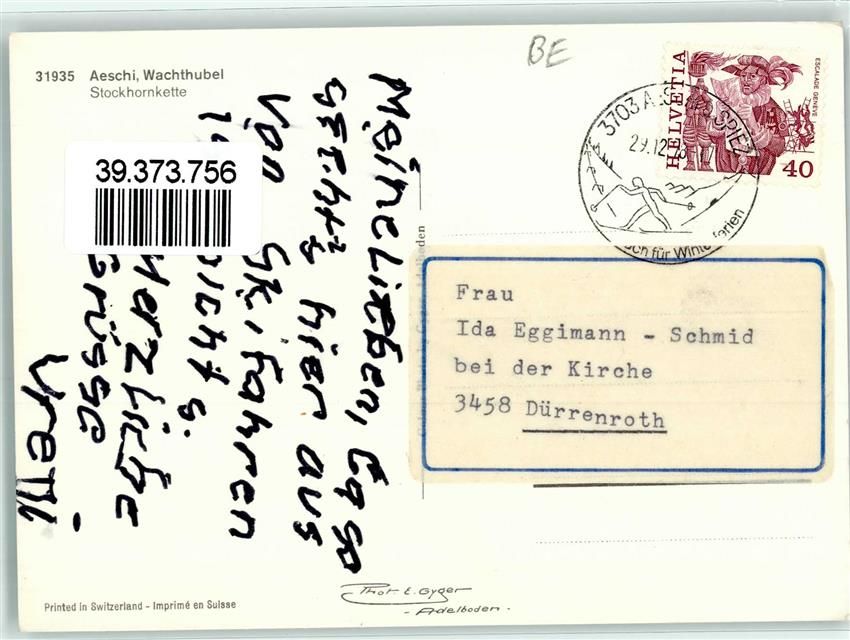 31935 Aeschi, Wachthubel
Stockhornkette
BE
HELVETIA
ESCALADE GENÈVE
40
3703 A SPIEZ
29.12.78
für Winterferien
39.373.756
Meine Lieben, Es so
hier aus
Von Skifahren
nichts.
Herzliche
Grüsse
Vreni
Adelboden
Frau
Ida Eggimann - Schmid
bei der Kirche
3458 Dürrenroth
Phot. E. Gyger
- Adelboden -
Printed in Switzerland - Imprimé en Suisse